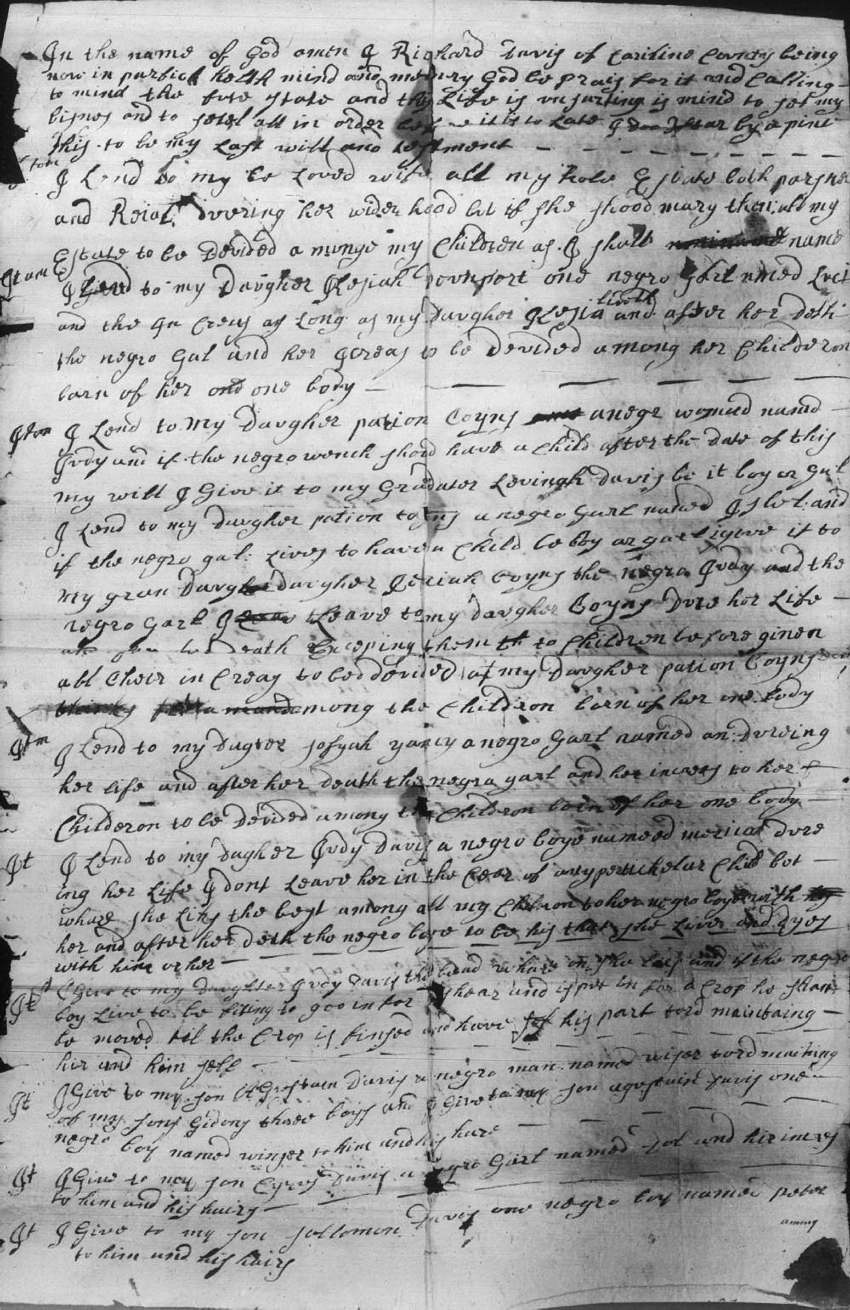 In the name of God amen I Richard Davis of Cariline County being
now in parfick helth mind and memory God be prais for it and Calling
to mind the fute state and this Life is unsurting is mind to set my
bisnes and to setel all in order before it is to Late I apint
this to be my Last will and testment
Itom I Lend to my be Loved wife all my hole Estate both parsnel
and Reial dvering her widerhood bt if she shood mary then all my
Estate to be Devided amonge my Children as I shall name
Itam I Lend to my Daugher Kesiah Devenport one negro Garl named Luci
and the In Creas as Long as my Daugher Kesia Liveth and after her deth
the negro Gal and her Icreas to be Devided among her Childeron
barn of her one body
Itom I Lend to my Daugher pation Coyns a negr woman named
Judy and if the negro wench shord have a Child after the Date of this
my will I Give it to my Gradater Levinah Davis be it boy or gal
I Lend to my Daugher pation Coyns a negro Garl named Isbel and
if the negro gal Lives to have a Child be boy or garl I give it to
my gran Daugher Keziah Coyns the negro Judy and the
negro Garl I Leave to my Daugher Coyns Dure her Life
and after her Death Excepting them to Children before ginen
all their in Creas to bed devided at my Daugher pation Coyns
among the Childron barn of her one body
Itm I Lend to my Dagter Josyah yancy a negro Garl named an dureing
her life and after her death the negro garl and her incres to her
Childeron to be Devided among the Childron born of her one body
It I Lend to my Dagher Judy Davis a negro boye named merica dure
ing her Life I dont Leave her in the Ceer of any pertickelar Child bot
whare she Liks the best among all my Children to her negro boye with
her and after her deth the negro boye to be his that she Lives and dyes
with him or her
It I Give to my Daughter Judy Davis the Lend whare on she Livs and if the negro
boy Live to be fiting to goo in for a share and is put in for a Crop he shant
be moved tel the Crop is finsed and have his part tord maintaing
her and him self
It I Give to my son Davis a negro man named tord maiting
of my sons Gidons three boys and I Give to my son Davis one
negro boy named winser to him and his hare
It I Give to my son Cyrus Davis a negro Garl named and hir incres
to him and his hairs
It I Give to my son Sollomon Davis one negro boy named peter
to him and his hairs
among